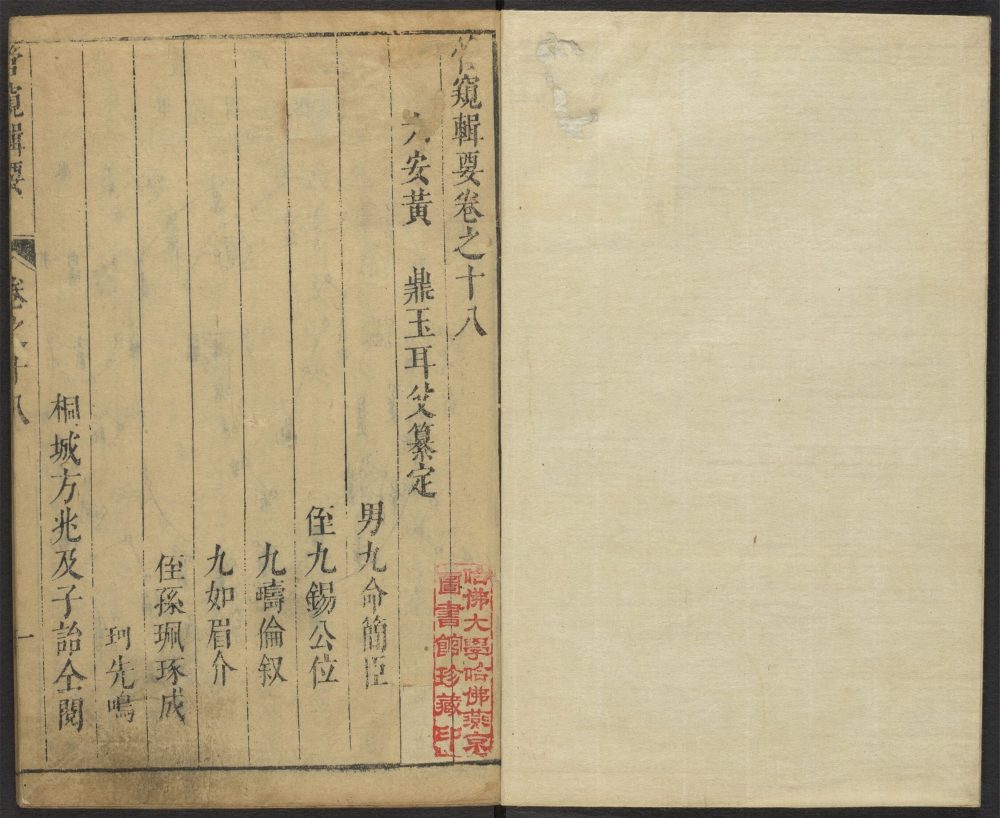 管窺輯要卷之十八
六安黃　鼎玉耳父纂定
男九命簡臣
侄九錫公位
九疇倫叙
九如眉介
侄孫珮琢成
珂先鳴
桐城方兆及子詒仝閱
管窺輯要　卷之十八　一
哈佛大學哈佛燕京
圖書館珍藏印